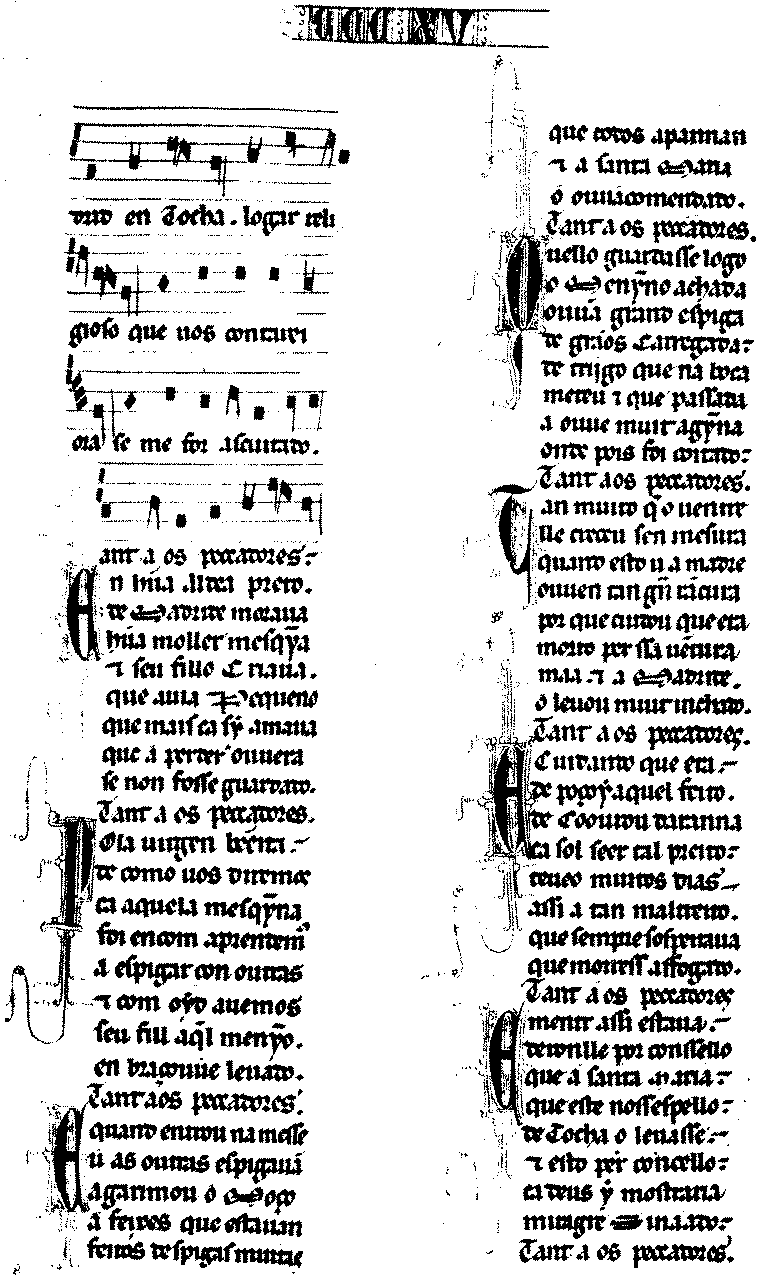 CCC XV
en Tocha. logar reli
gioso que uos conturi
oia se me for ascuitado.
Tant a os pecadores:
En hũa aldea preto.
de Madride moraua
hũa moller mesqỹa
⁊ seu fillo Criaua.
que auia Pequeno
que mais ca sỹ amaua
que á perder ouuera
se non fosse guardado.
Tant a os pecadores.
Ola uirgen beeita:
de como uos diremos
ca aquela mesqỹna
foi
a espigar con outras
⁊ com oỹdo auemos
seu fill aq̃l menỹo.
en braç ouue leuado.
Tant aos pecadores.
E quand entrou na messe
u as outras espigauã
agarimou o Moço
a feixes que estauan
feitos despigas
que todos apannan
⁊ a santa Maria
o ouu acomendado.
Tant a os pecadores.
O uello guardasse logo
o Menỹno achada
ouuã grand espiga
de grãos Carregada:
de trijgo que na boca
meteu ⁊ que passada
a ouue muit agỹna
onde pois foi coitado:
Tant aos pecadores.
Tan muito q̃ o uentre
lle creceu sen mesura
quand esto u a madre
ouuen tan gñ rãcura
por que cuidou que era
morto per ssa uẽtura
maa. ⁊ a Madride.
o leuou muit inchado.
Tant a os pecadores.
E Cuidando que era:
de poçoỹ aquel feito.
de Coouutou daranna
ca sol seer tal preito:
teueo muitos dias
assi a tan maltreito.
que sempre sospeitaua
que moress affogado.
Tant a os pecadores
E mentr assi estaua:
deronlle por consselło
que a santa maria:
que este nossespello:
de Tocha o leuasse:
⁊ esto per concello:
ca deus ỹ mostraria
miragre
Tant a os pecadores.